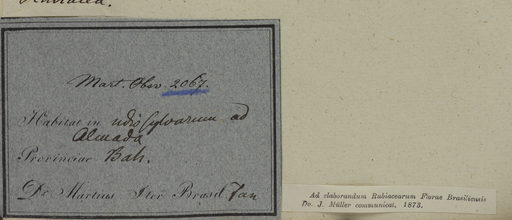 Mart. Obs. 2067.
Habitat in udis sylvarum ad
Almada
Provinciae Bah.
Dr. Martius Iter Brasil. Jan
Ad elaborandum Rubiacearum Florae Brasiliensis
Dr. J. Müller communicat, 1873.